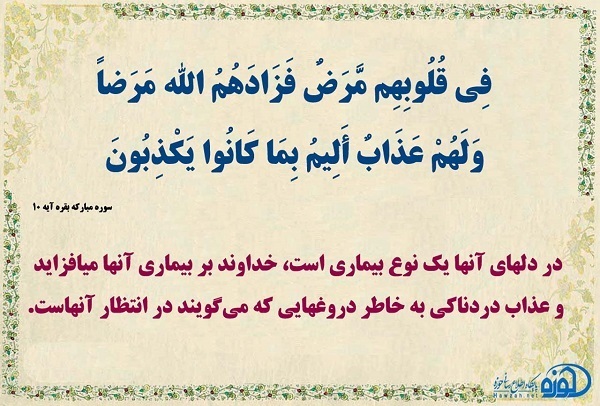 فِی قُلُوبِهِم مَّرَضٌ فَزَادَهُمُ الله مَرَضاً
وَلَهُمْ عَذَابٌ أَلِیمُ بِمَا كَانُوا یَكْذِبُونَ
سوره مبارکه بقره آیه ۱۰
در دلهای آنها یک نوع بیماری است، خداوند بر بیماری آنها میافزاید
و عذاب دردناکی به خاطر دروغهایی که می‌گویند در انتظار آنهاست.
پایگاه اطلاع رسانی حوزه
حوزه
Hawzah.net